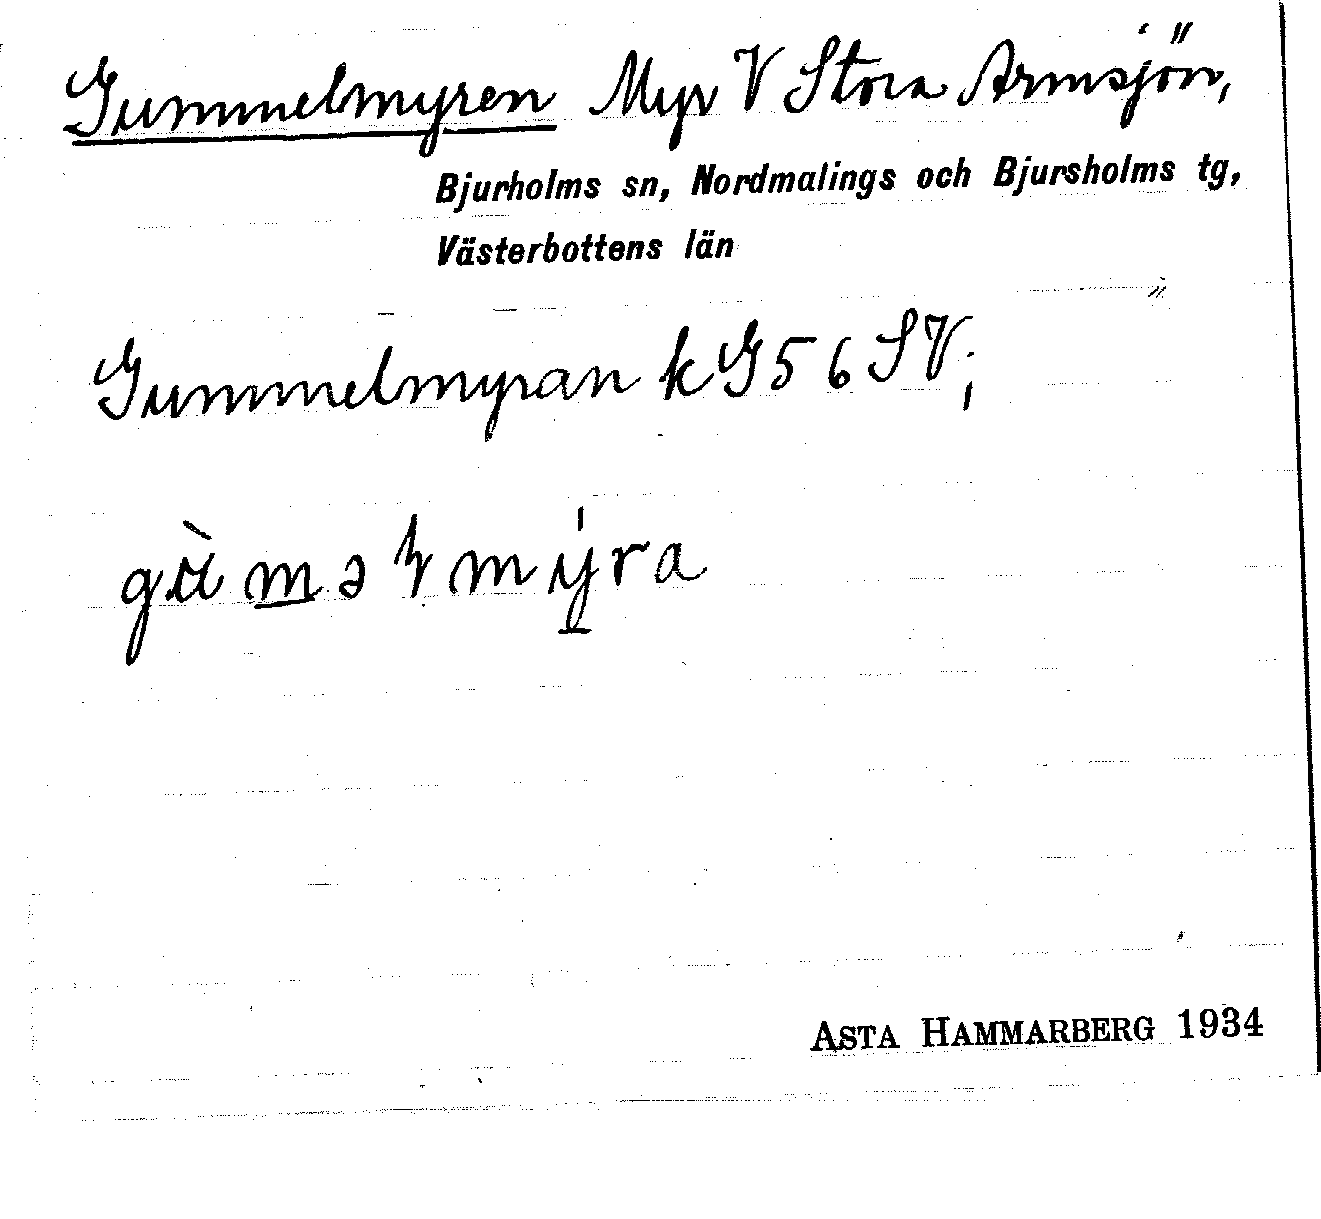 Gummelmyren Myr V Stora Armsjön,
Bjurholms sn, Nordmalings och Bjursholms tg,
Västerbottens län
Gummelmyran kG 56 SV;
gùməɭmýra
ASTA HAMMARBERG 1934